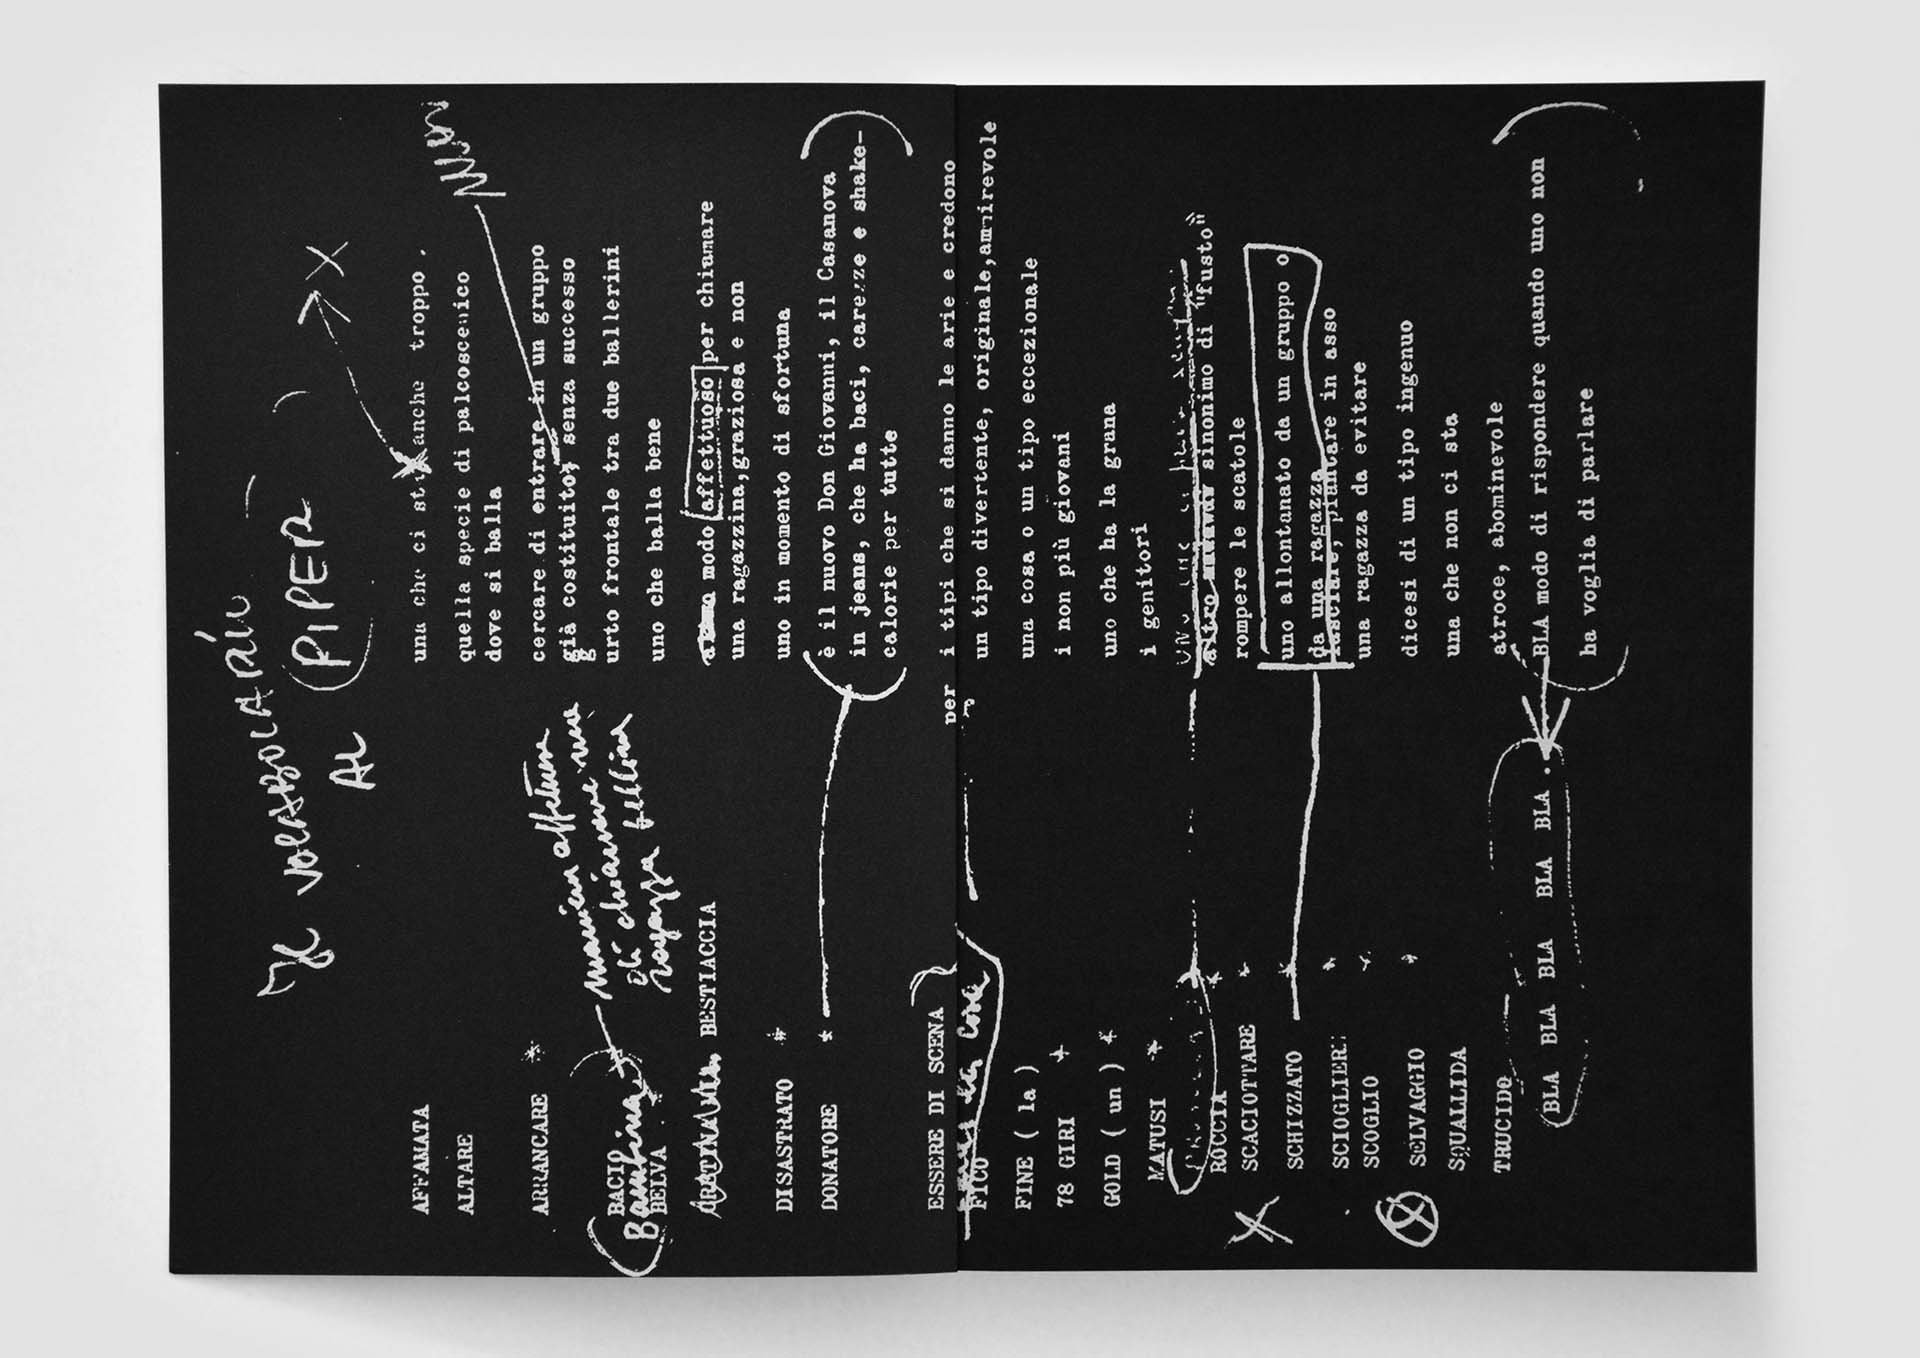 Il VOCABOLARIO
AL (PIPER)
X
AFFAMATA una che ci sta anche troppo.
ALTARE quella specie di palcoscenico
dove si balla
ARRANCARE * cercare di entrare in un gruppo
già costituito, senza successo
BACIO urto frontale tra due ballerini
Bambina maniera affettuosa
di chiamare una
ragazza bellina
BELVA uno che balla bene
BESTIACCIA modo affettuoso per chiamare
una ragazzina, graziosa e non
DISASTRATO * uno in momento di sfortuna
DONATORE * è il nuovo Don Giovanni, il Casanova
in jeans, che ha baci, carezze e shake-
calorie per tutte
ESSERE DI SCENA per i tipi che si danno le arie e credono
FICO un tipo divertente, originale, ammirevole
FINE ( la ) una cosa o un tipo eccezionale
78 GIRI * i non più giovani
GOLD ( un ) * uno che ha la grana
MATUSI * i genitori
ROCCIA * altro sinonimo di "fusto"
SCACIOTTARE * rompere le scatole
SCHIZZATO * uno allontanato da un gruppo o
da una ragazza
SCIOGLIERE * lasciare, piantare in asso
SCOGLIO * una ragazza da evitare
SELVAGGIO * dicesi di un tipo ingenuo
SQUALLIDA una che non ci sta
TRUCIDO atroce, abominevole
BLA BLA BLA BLA BLA BLA . BLA modo di rispondere quando uno non
ha voglia di parlare